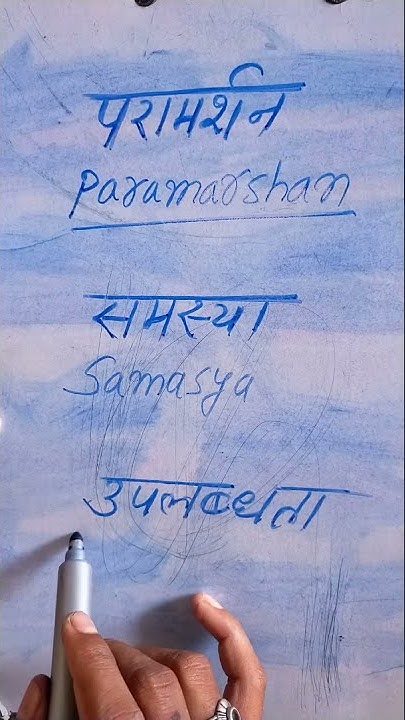 परामर्शन
Paramarshan
समस्या
Samasya
उपलब्धता